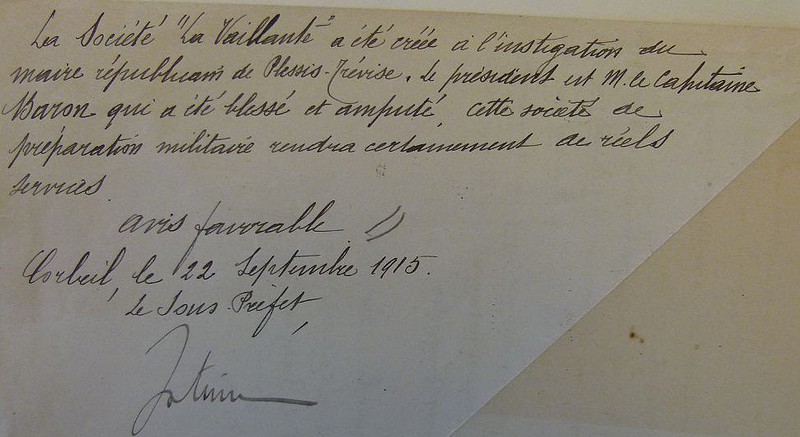 La Société "La Vaillante" a été créée à l'instigation du
maire républicain de Plessis-Trévise. Le président est M. le Capitaine
Baron qui a été blessé et amputé, cette société de
préparation militaire rendra certainement de réels
services.
avis favorable
Corbeil, le 22 Septembre 1915.
Le Sous-Préfet,